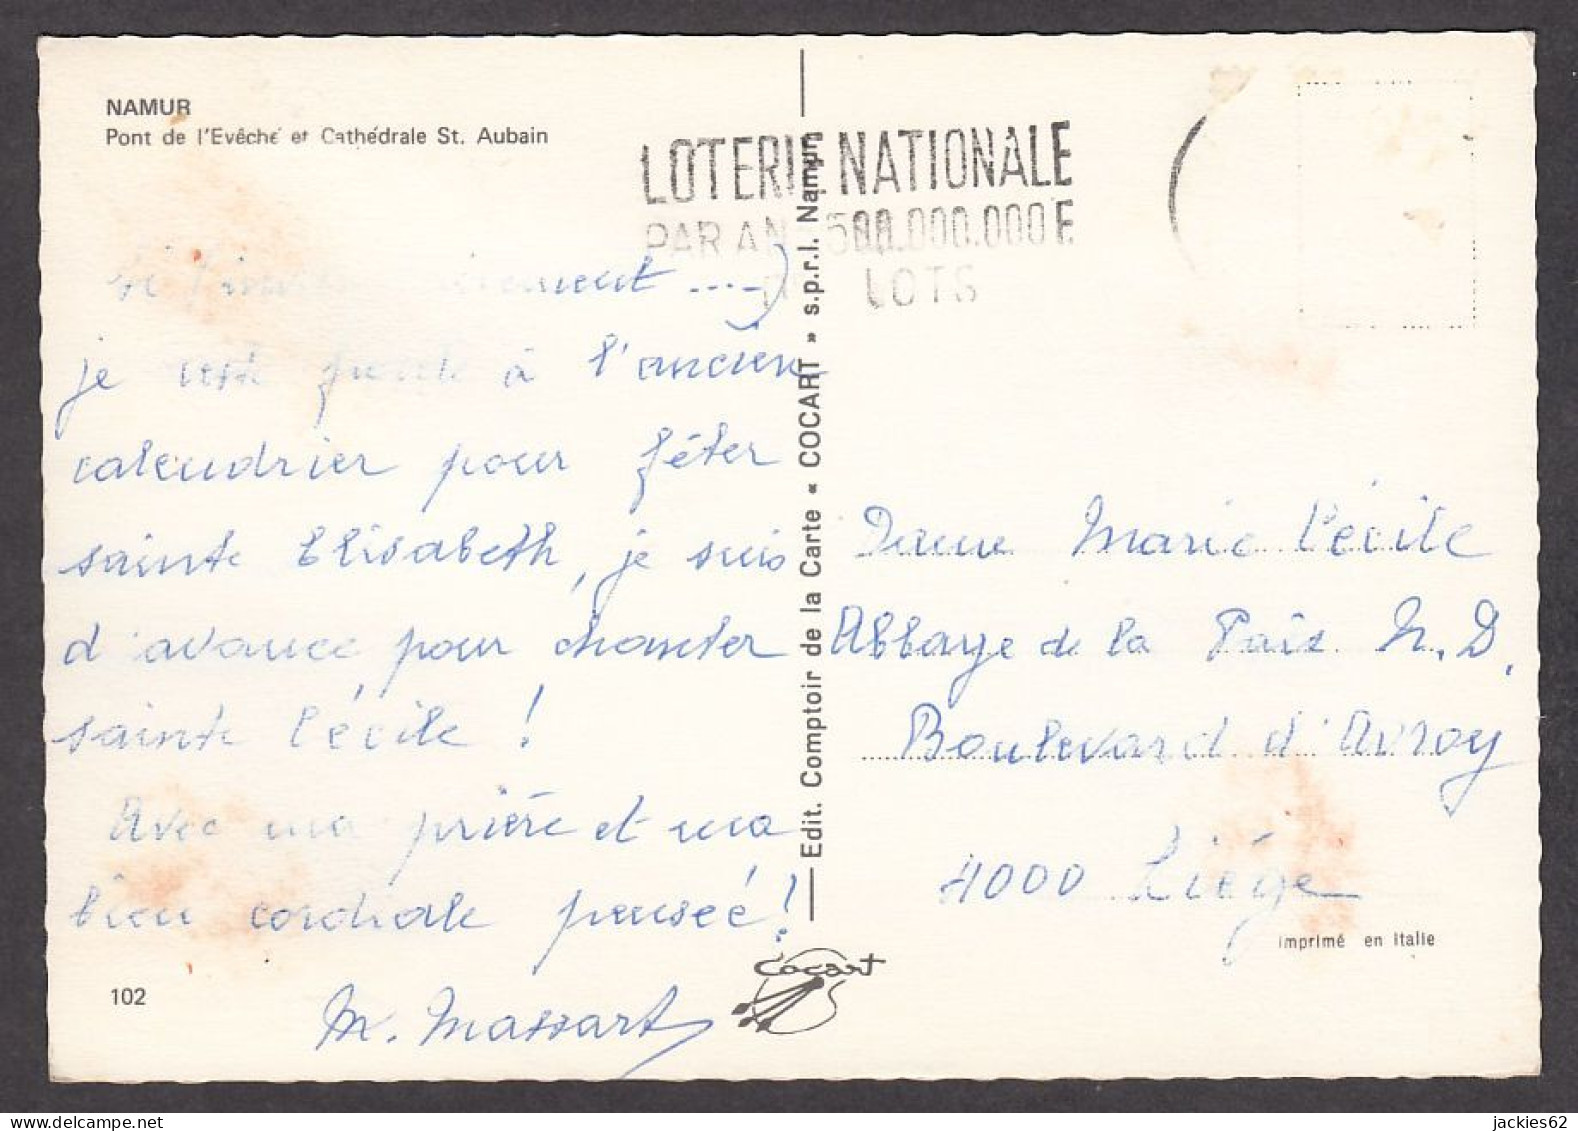 NAMUR
Pont de l'Evêché et Cathédrale St. Aubain
LOTERIE NATIONALE
PAR AN 500.000.000 F
LOTS
je reste fidèle à l'ancien
calendrier pour fêter
sainte Elisabeth, je suis
d'avance pour chanter
sainte Cécile !
Avec ma prière et ma
bien cordiale pensée !
M. Massart
102
Edit. Comptoir de la Carte « COCART » s.p.r.l. Namur
Cocart
Dame Marie Cécile
Abbaye de la Paix N. D.
Boulevard d'Avroy
4000 Liége
Imprimé en Italie
jackies62